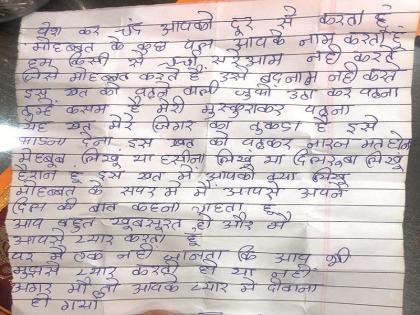 पेश कर चंद आपको दूर से करता है
मोहब्बत के कुछ पल आपके नाम करता है
हम किसी से सरेआम नही करते
जिसे मोहब्बत करते है उसे बदनाम नही करते
इस खत को पढने वाली उठा कर पढना
तुम्हे कसम है मेरी मुस्कुराकर पढना
यह खत मेरे जिगर का टुकडा है इसे
देना इस खत को पढकर नाराज मत होना
मेहबूब लिखु या हसीना लिखु या दिलरुबा लिखु
हैरान हू इस खत मे आपको क्या लिखु
मोहब्बत के सफर मे मै आपसे अपने
दिल की बात कहना चाहता हू
आप बहुत खूबसूरत हो और मै
आपसे प्यार करता हू
पर मै नही जानता कि आप भी
मुझसे प्यार करती हो या नही
मगर मै तो आपके प्यार मे दीवाना
हो गया